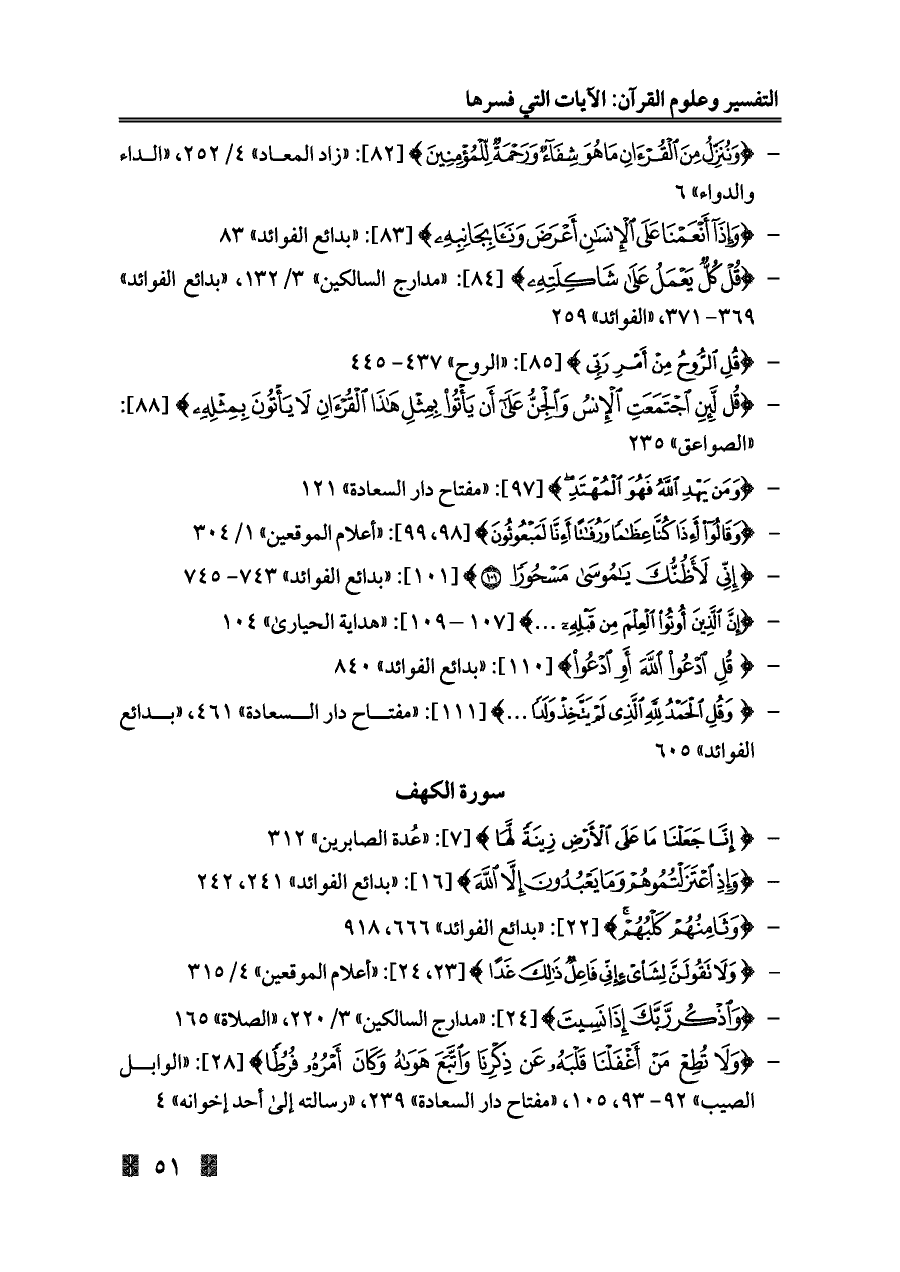 التفسير وعلوم القرآن: الآيات التي فسرها
- ﴿وَنُنَزِّلُ مِنَ ٱلْقُرْءَانِ مَا هُوَ شِفَآءٌ وَرَحْمَةٌ لِّلْمُؤْمِنِينَ﴾ [٨٢]: «زاد المعاد» ٤/ ٢٥٢، «الـداء
والدواء» ٦
- ﴿وَإِذَآ أَنْعَمْنَا عَلَى ٱلْإِنسَٰنِ أَعْرَضَ وَنَـَٔا بِجَانِبِهِۦ﴾ [٨٣]: «بدائع الفوائد» ٨٣
- ﴿قُلْ كُلٌّ يَعْمَلُ عَلَىٰ شَاكِلَتِهِۦ﴾ [٨٤]: «مدارج السالكين» ٣/ ١٣٢، «بدائع الفوائد»
٣٦٩- ٣٧١، «الفوائد» ٢٥٩
- ﴿قُلِ ٱلرُّوحُ مِنْ أَمْرِ رَبِّى﴾ [٨٥]: «الروح» ٤٣٧- ٤٤٥
- ﴿قُل لَّئِنِ ٱجْتَمَعَتِ ٱلْإِنسُ وَٱلْجِنُّ عَلَىٰٓ أَن يَأْتُوا۟ بِمِثْلِ هَٰذَا ٱلْقُرْءَانِ لَا يَأْتُونَ بِمِثْلِهِۦ﴾ [٨٨]:
«الصواعق» ٢٣٥
- ﴿وَمَن يَهْدِ ٱللَّهُ فَهُوَ ٱلْمُهْتَدِ ۖ﴾ [٩٧]: «مفتاح دار السعادة» ١٢١
- ﴿وَقَالُوٓا۟ أَءِذَا كُنَّا عِظَٰمًا وَرُفَٰتًا أَءِنَّا لَمَبْعُوثُونَ﴾ [٩٨، ٩٩]: «أعلام الموقعين» ١/ ٣٠٤
- ﴿إِنِّى لَأَظُنُّكَ يَٰمُوسَىٰ مَسْحُورًا ١٠١﴾ [١٠١]: «بدائع الفوائد» ٧٤٣- ٧٤٥
- ﴿إِنَّ ٱلَّذِينَ أُوتُوا۟ ٱلْعِلْمَ مِن قَبْلِهِۦٓ ...﴾ [١٠٧ – ١٠٩]: «هداية الحيارىٰ» ١٠٤
- ﴿قُلِ ٱدْعُوا۟ ٱللَّهَ أَوِ ٱدْعُوا۟﴾ [١١٠]: «بدائع الفوائد» ٨٤٠
- ﴿وَقُلِ ٱلْحَمْدُ لِلَّهِ ٱلَّذِى لَمْ يَتَّخِذْ وَلَدًا ...﴾ [١١١]: «مفتـاح دار الـسعادة» ٤٦١، «بـدائع
الفوائد» ٦٠٥
سورة الكهف
- ﴿إِنَّا جَعَلْنَا مَا عَلَى ٱلْأَرْضِ زِينَةً لَّهَا﴾ [٧]: «عُدة الصابرين» ٣١٢
- ﴿وَإِذِ ٱعْتَزَلْتُمُوهُمْ وَمَا يَعْبُدُونَ إِلَّا ٱللَّهَ﴾ [١٦]: «بدائع الفوائد» ٢٤١، ٢٤٢
- ﴿وَثَامِنُهُمْ كَلْبُهُمْ ۚ﴾ [٢٢]: «بدائع الفوائد» ٦٦٦، ٩١٨
- ﴿وَلَا تَقُولَنَّ لِشَا۟ىْءٍ إِنِّى فَاعِلٌ ذَٰلِكَ غَدًا﴾ [٢٣، ٢٤]: «أعلام الموقعين» ٤/ ٣١٥
- ﴿وَٱذْكُر رَّبَّكَ إِذَا نَسِيتَ﴾ [٢٤]: «مدارج السالكين» ٣/ ٢٢٠، «الصلاة» ١٦٥
- ﴿وَلَا تُطِعْ مَنْ أَغْفَلْنَا قَلْبَهُۥ عَن ذِكْرِنَا وَٱتَّبَعَ هَوَىٰهُ وَكَانَ أَمْرُهُۥ فُرُطًا﴾ [٢٨]: «الوابـل
الصيب» ٩٢- ٩٣، ١٠٥، «مفتاح دار السعادة» ٢٣٩، «رسالته إلىٰ أحد إخوانه» ٤
٥١